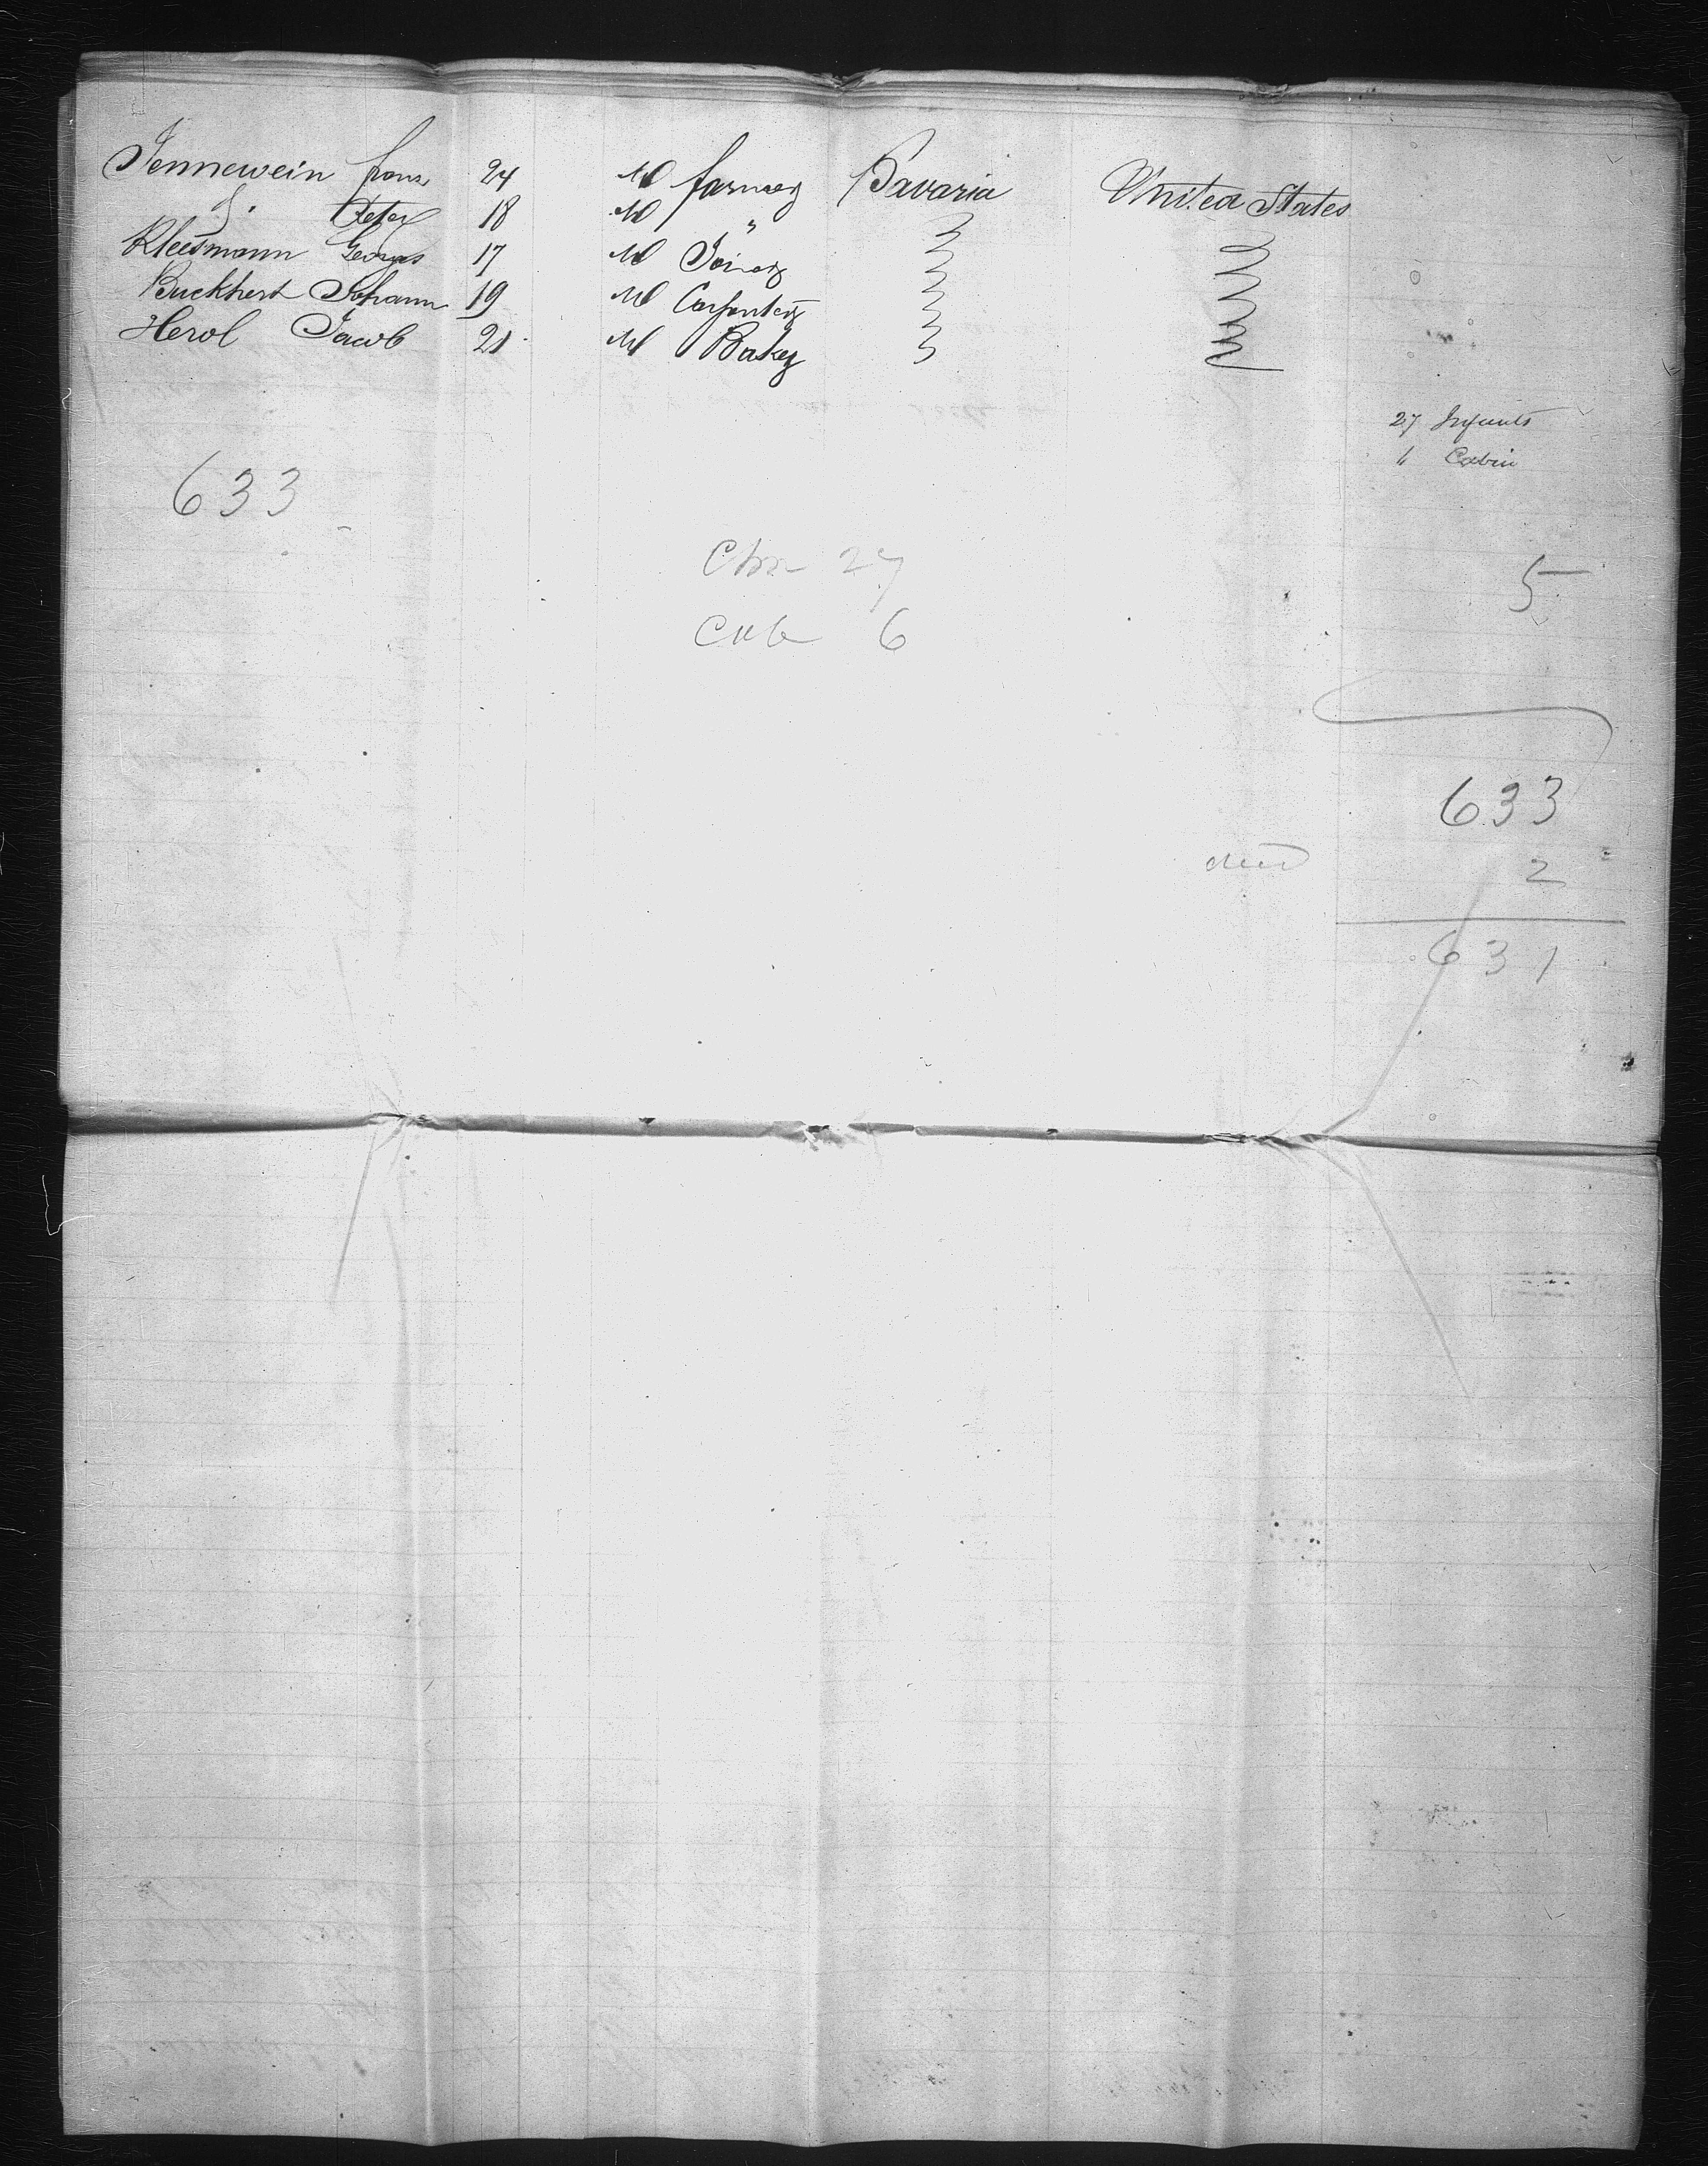 Jennewein franz 24 M farmer Bavaria United States
d. Peter 18 M "
Kleesmann Georges 17 M Joiner
Buckhert Johann 19 M Carpenter
Herol Jacob 21 M Baker
27 Infants
6 Cabin
633
5
Chn 27
Cab 6
633
died 2
631